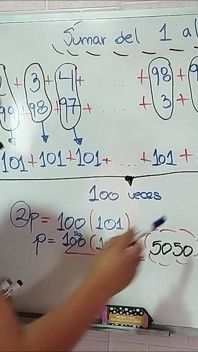 Sumar del 1 al
+ 3 + 4 + + 98 + 9
99 + 98 + 97 + + 3 +
101 + 101 + 101 + ... + 101 +
100 veces
2p = 100 (101)
p = 100 (1 5050